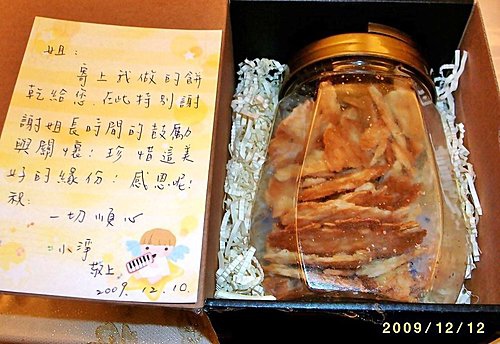 姐:
寄上我做的餅
乾給您.在此特別謝
謝姐長時間的鼓勵
與關懷!珍惜這美
好的緣份!感恩呢!
祝:
一切順心
小淨
敬上
2009.12.10.
2009/12/12